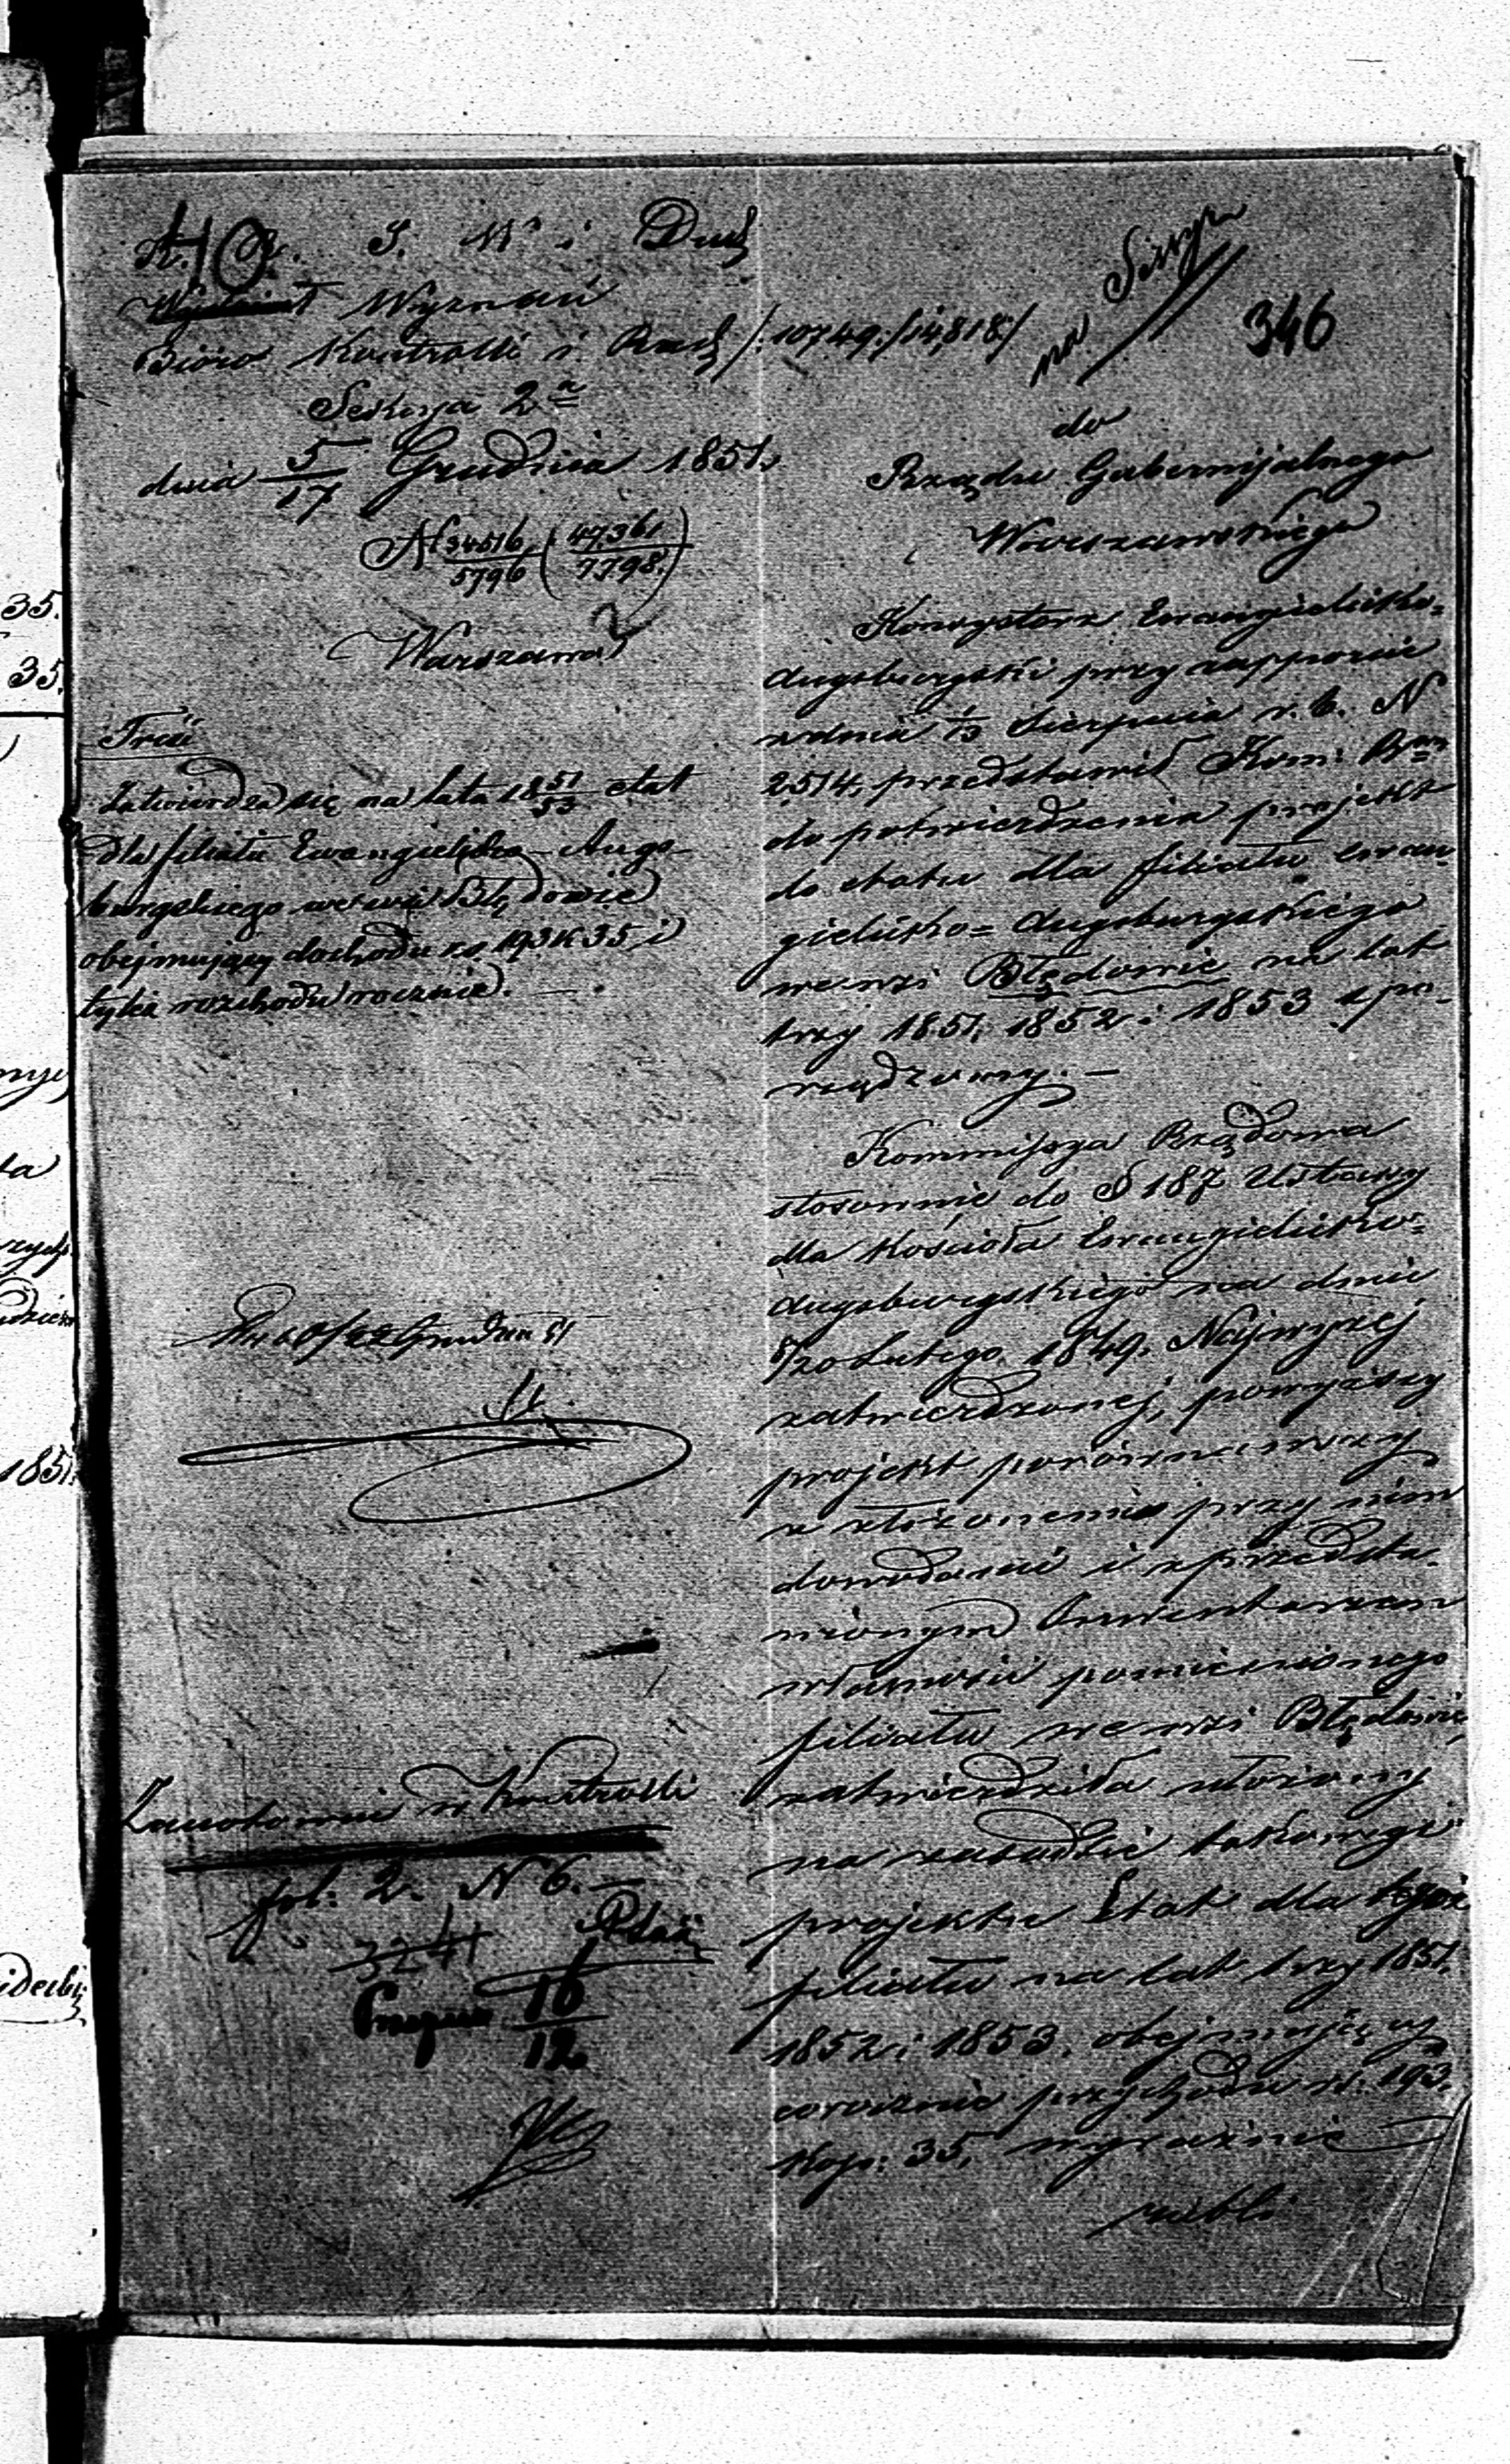 K. R. S. W. i Duch
40
Wydział Wyznań
Bióro Kontrolli i Rach /:10749./14,818:/
Sekcja 2a
dnia 5/17 Grudnia 1851.
N 34516/5796 (47,361/7798.)
Warszawa
Treść
Zatwierdza się na lata 18 51/53 etat
dla filiału Ewangielicko-Augs-
burgskiego we wsi Błędowie
obejmujący dochodu rs. 193 k 35, i
tyleż rozchodu rocznie. —
Grudnia 51
Zanotowano w Kontrolli
fol: 2. N 6. —
3241
16/12
na
346
do
Rządu Gubernijalnego
Warszawskiego
Konsystorz Ewangielicko-
Augsburgski przy rapporcie
z dnia 1/13 Sierpnia r. b. N
2514, przedstawił Kom: Rzą
do potwierdzenia projekt
do etatu dla filiału ewan
gielicko=Augsburgskiego
we wsi Błędowie na lat
trzy 1851, 1852 i 1853 spo-
rządzony. —
Kommissya Rządowa
stosownie do § 187 Ustawy
dla Kościoła Ewangielicko-
Augsburgskiego na dniu
8/20 Lutego 1849. Najwyżej
zatwierdzonej, powyższy
projekt porównawszy
z złożonemi przy nim
dowodami i z przedsta-
wionym Inwentarzem
własności pomienionego
filiału we wsi Błędowie,
zatwierdziła ułożony
na zasadzie takowego
projektu Etat dla tegoż
filiału na lat trzy 1851,
1852 i 1853. obejmujący
corocznie przychodu rs: 193.
kop: 35, wyraźnie
rubli
35.
35.
1851.